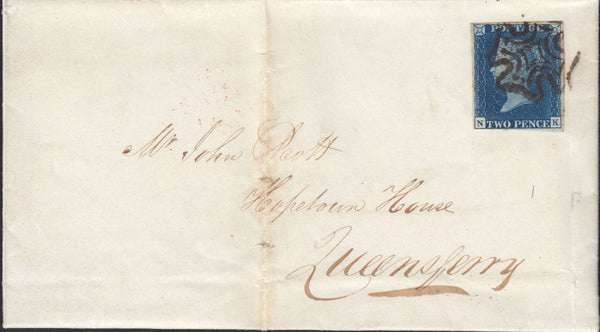 POSTAGE
N TWO PENCE K
Mr. John Scott
Hopetown House
Queensferry